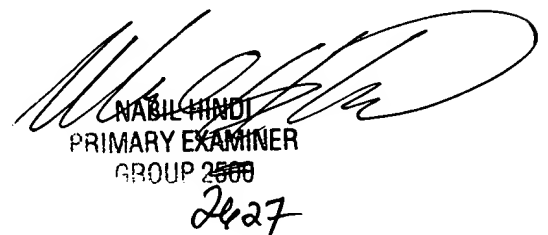 NABIL HINDI
PRIMARY EXAMINER
GROUP 2500
2427